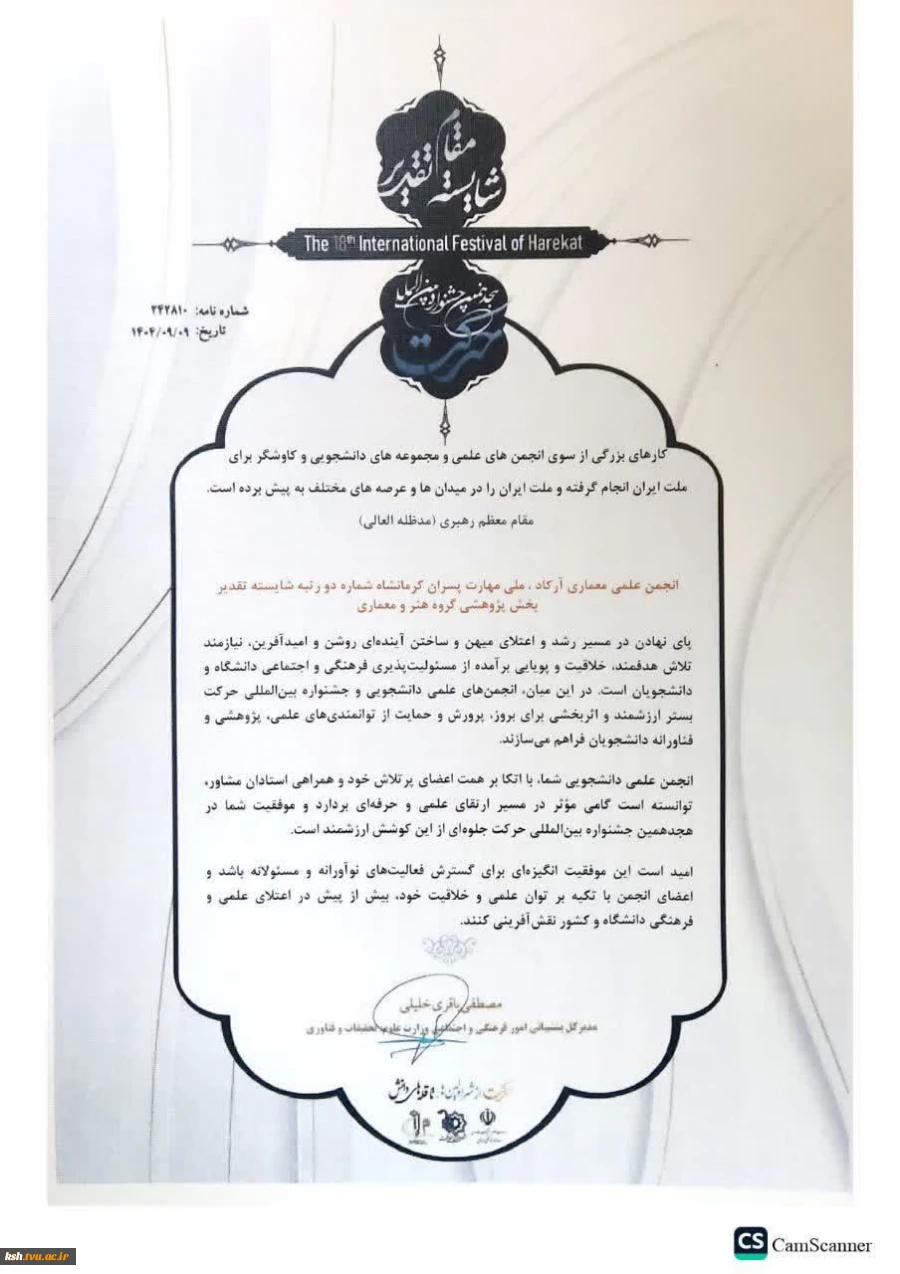 شایسته
مقام
تقدیر
The 18th International Festival of Harekat
هجدهمین جشنواره بین المللی
حرکت
شماره نامه: ۲۴۲۸۱۰
تاریخ: ۱۴۰۴/۰۹/۰۹
کارهای بزرگی از سوی انجمن های علمی و مجموعه های دانشجویی و کاوشگر برای
ملت ایران انجام گرفته و ملت ایران را در میدان ها و عرصه های مختلف به پیش برده است.
مقام معظم رهبری (مدظله العالی)
انجمن علمی معماری آرکاد ، ملی مهارت پسران کرمانشاه شماره دو رتبه شایسته تقدیر
بخش پژوهشی گروه هنر و معماری
پای نهادن در مسیر رشد و اعتلای میهن و ساختن آینده‌ای روشن و امیدآفرین، نیازمند
تلاش هدفمند، خلاقیت و پویایی برآمده از مسئولیت‌پذیری فرهنگی و اجتماعی دانشگاه و
دانشجویان است. در این میان، انجمن‌های علمی دانشجویی و جشنواره بین‌المللی حرکت
بستر ارزشمند و اثربخشی برای بروز، پرورش و حمایت از توانمندی‌های علمی، پژوهشی و
فناورانه دانشجویان فراهم می‌سازند.
انجمن علمی دانشجویی شما، با اتکا بر همت اعضای پرتلاش خود و همراهی استادان مشاور،
توانسته است گامی مؤثر در مسیر ارتقای علمی و حرفه‌ای بردارد و موفقیت شما در
هجدهمین جشنواره بین‌المللی حرکت جلوه‌ای از این کوشش ارزشمند است.
امید است این موفقیت انگیزه‌ای برای گسترش فعالیت‌های نوآورانه و مسئولانه باشد و
اعضای انجمن با تکیه بر توان علمی و خلاقیت خود، بیش از پیش در اعتلای علمی و
فرهنگی دانشگاه و کشور نقش‌آفرینی کنند.
مصطفی باقری خلیلی
مدیرکل پشتیبانی امور فرهنگی و اجتماعی وزارت علوم، تحقیقات و فناوری
حرکت از شهر اولین‌ها، تا قله‌های دانش
ksh.tvu.ac.ir
CS CamScanner